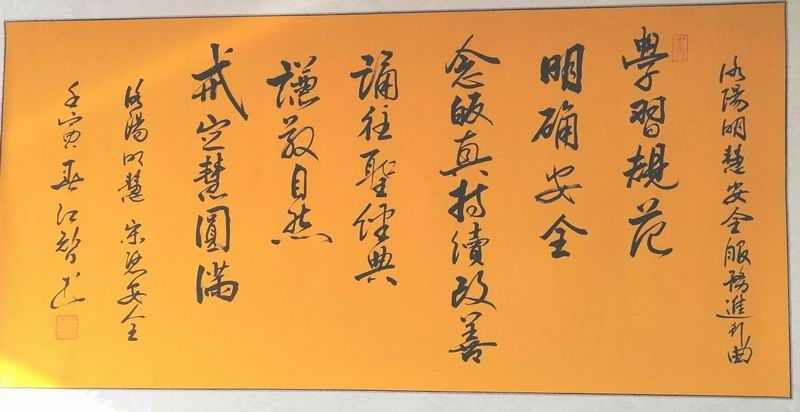 洛陽明慧安全服務進行曲
學習規范
明确安全
念皈真持續改善
誦往聖經典
謙敬自然
戒定慧圓满
洛陽明慧 宗思安全
壬寅春江智書